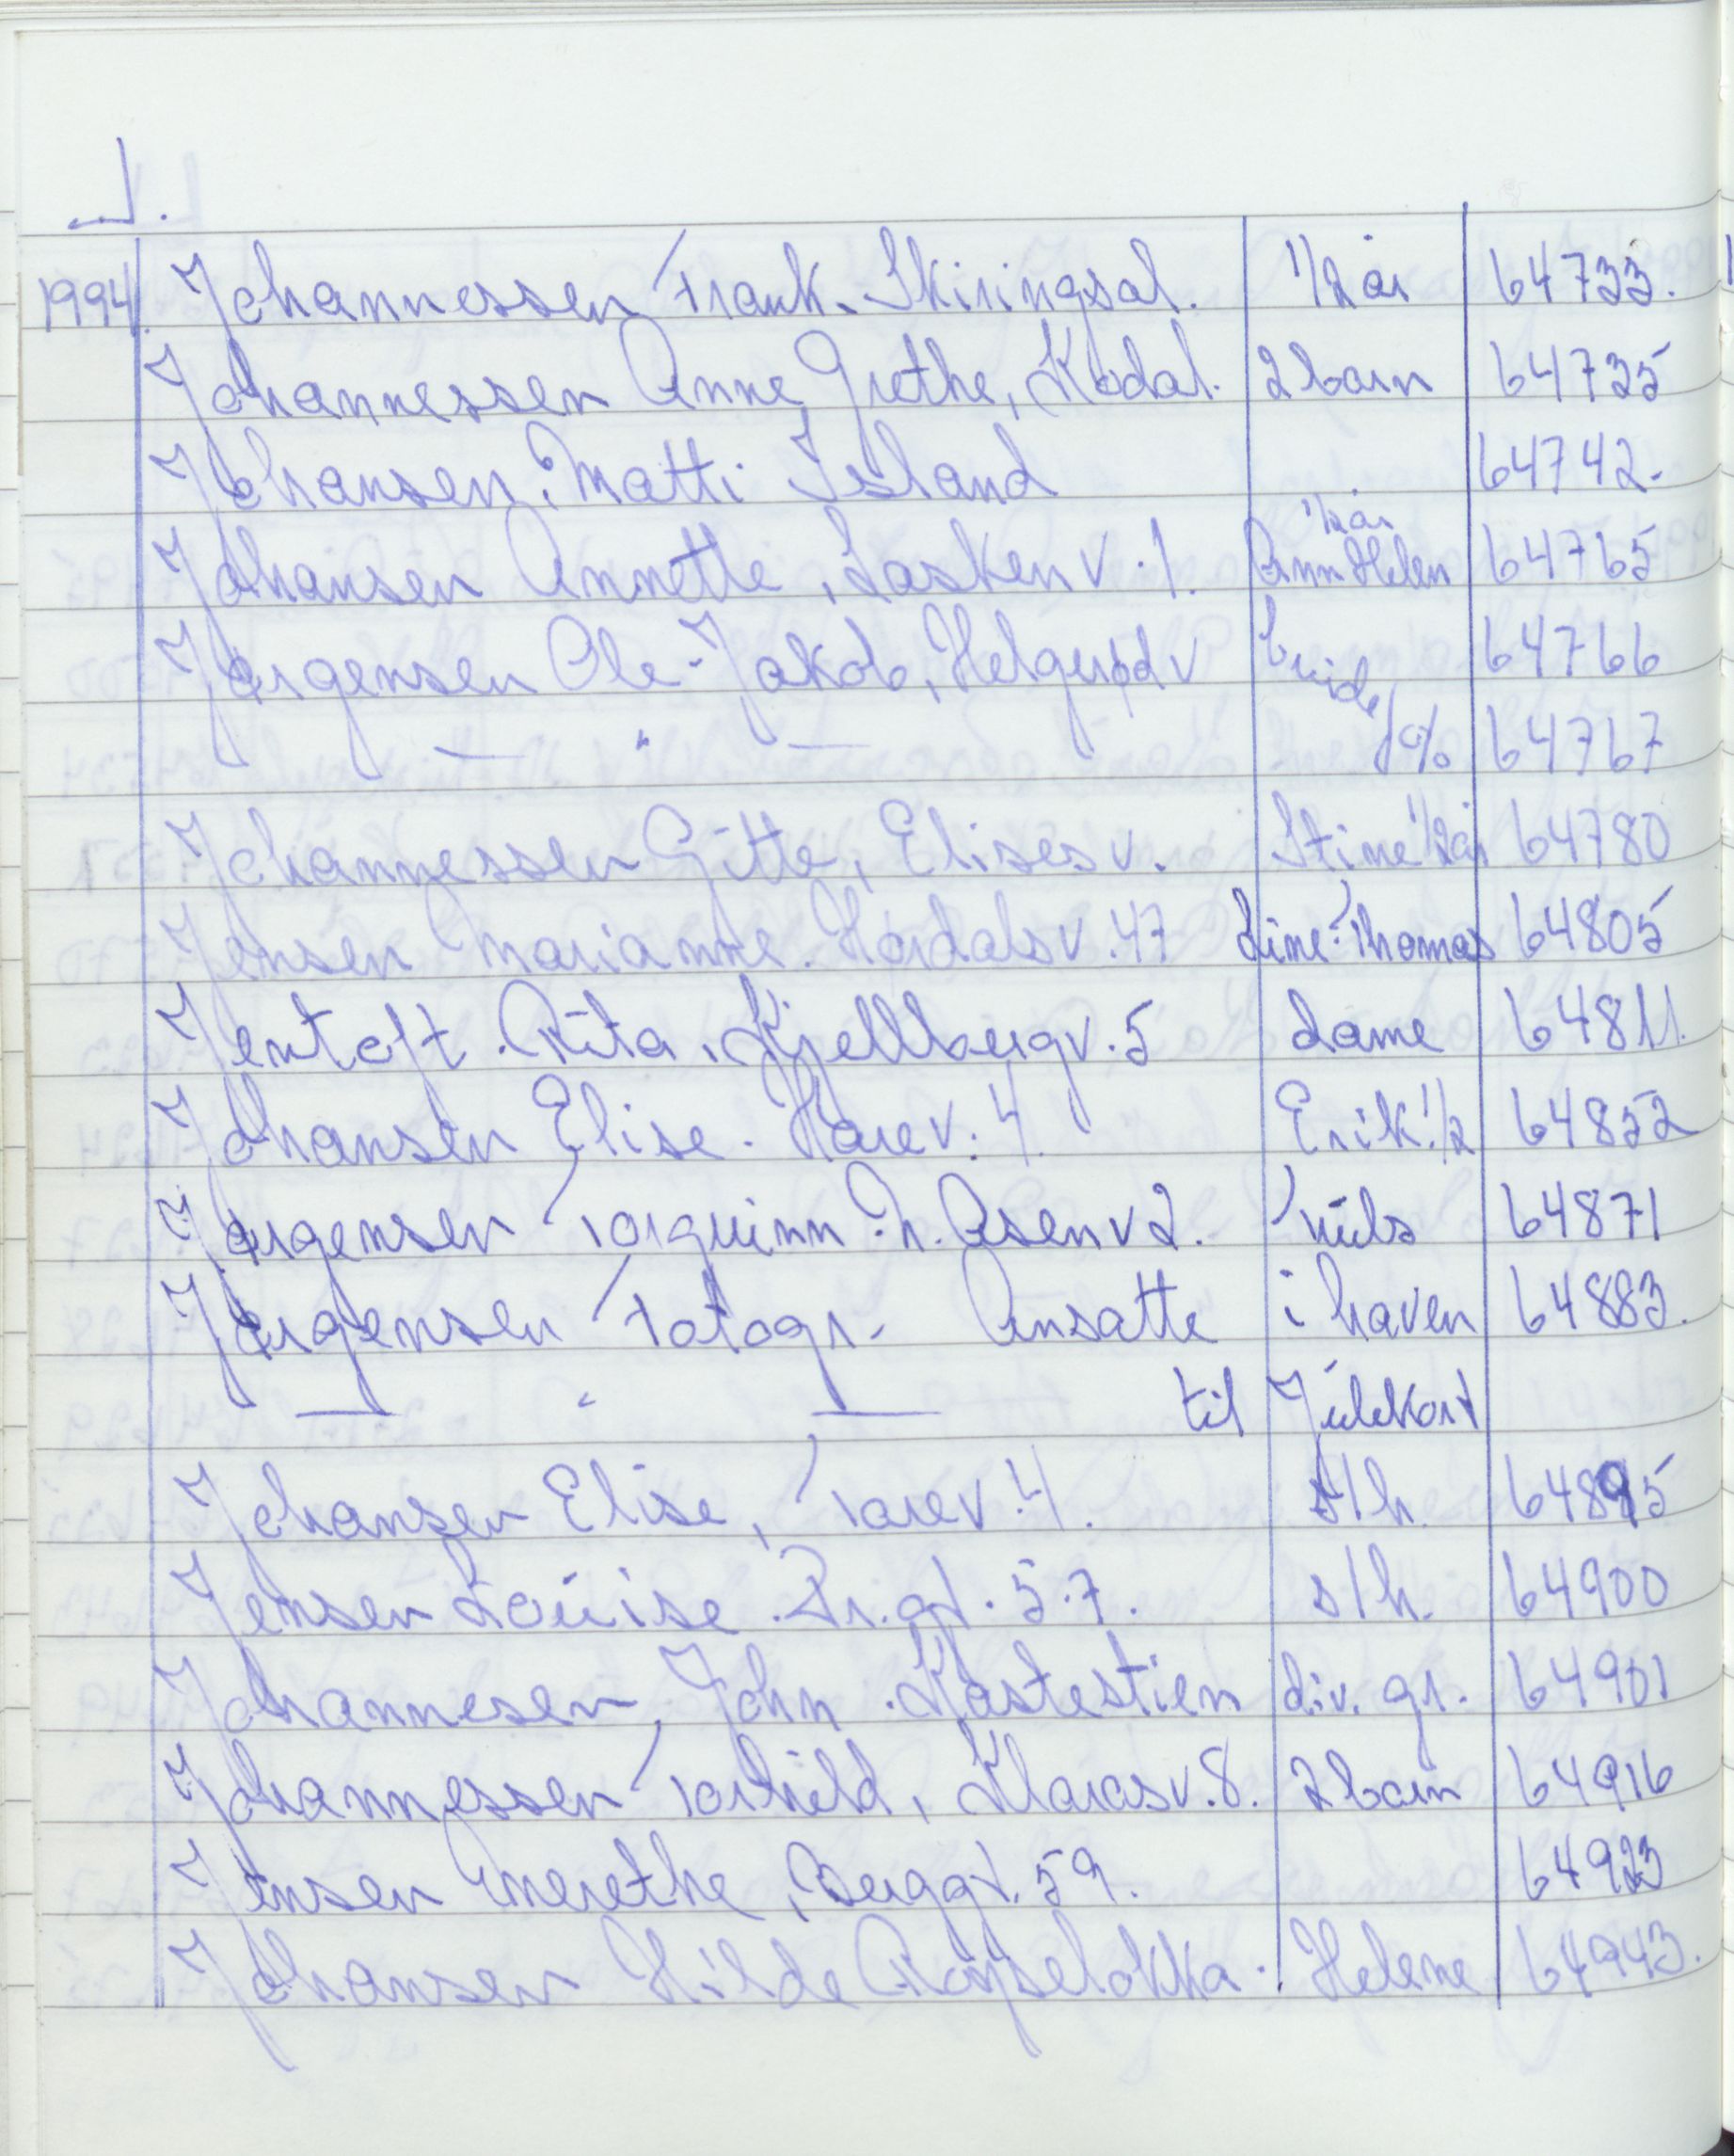 J.
1994. Johannessen Frank. Skiringsal. 1/2 år 64733.
Johannessen Anne Grethe, Kodal. 2 barn 64735
Johansen, Matti Island 64742.
Johansen Annette, Lasken v. 1. 1/2 år Ann Helen 64765
Jørgensen Ole-Jakob, Helgerød v brude 64766
— " — 64767
Johannessen Gitte, Elises v. Stine 1/2 år 64780
Jensen Marianne. Hårdals v. 47 Line: Thomas 64805
Jentoft. Rita. Kjellbergv. 5 dame 64811.
Johansen Elise. Harev. 4. Erik 1/2 64852
Jørgensen Torguinn. N. Åsen v 2. Nils 64871
Jørgensen Fotogr. Ansatte i haven 64883.
— " — til Julekort
Johansen Elise, Harev. 4. s/h. 64895
Jensen Louise. Pr.gt. 57. s/h. 64900
Johannesen, John. Kastestien div. gr. 64901
Johannessen Torhild, Klaras v. 8. 2 barn 64916
Jensen Merethe, Berggt. 59. 64923
Johansen Hilde Røyseløkka. Helene 64943.